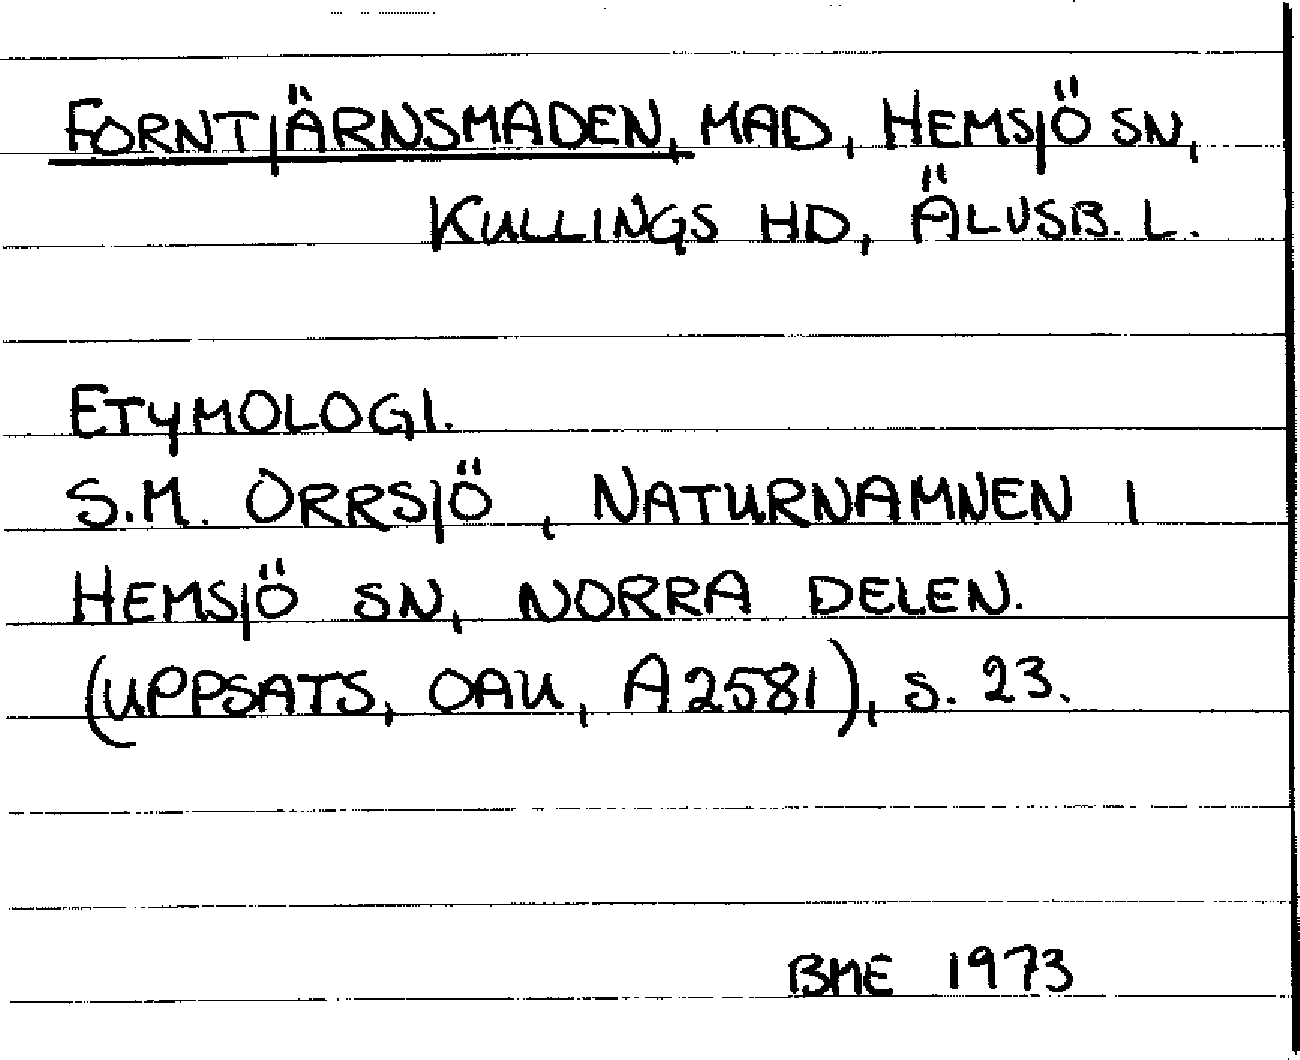 FORNTJÄRNSMADEN, MAD, HEMSJÖ SN,
KULLINGS HD, ÄLVSB. L.
ETYMOLOGI.
S.M. ORRSJÖ, NATURNAMNEN I
HEMSJÖ SN, NORRA DELEN.
(UPPSATS, OAU, A2581), S. 23.
BME 1973